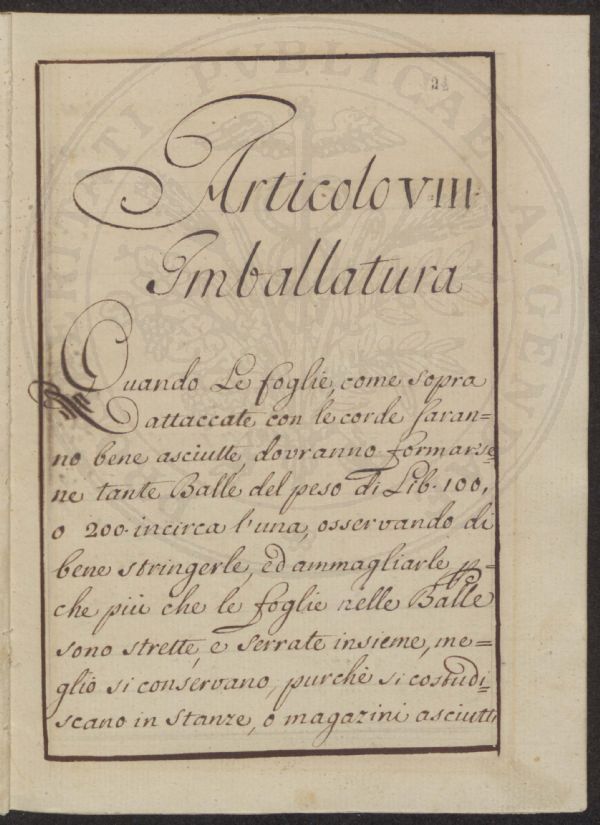 24
Articolo VIII.
Imballatura
Quando Le foglie, come sopra
attaccate con le corde saran=
no bene asciutte, dovranno formarse=
ne tante Balle del peso di Lib. 100,
o 200. incirca l'una, osservando di
bene stringerle, ed ammagliarle p=
che più che le foglie nelle Balle
sono strette, e serrate insieme, me=
glio si conservano, purchè si costudi=
scano in stanze, o magazini asciutti
VERITATI PVBLICAE AVGENDAE